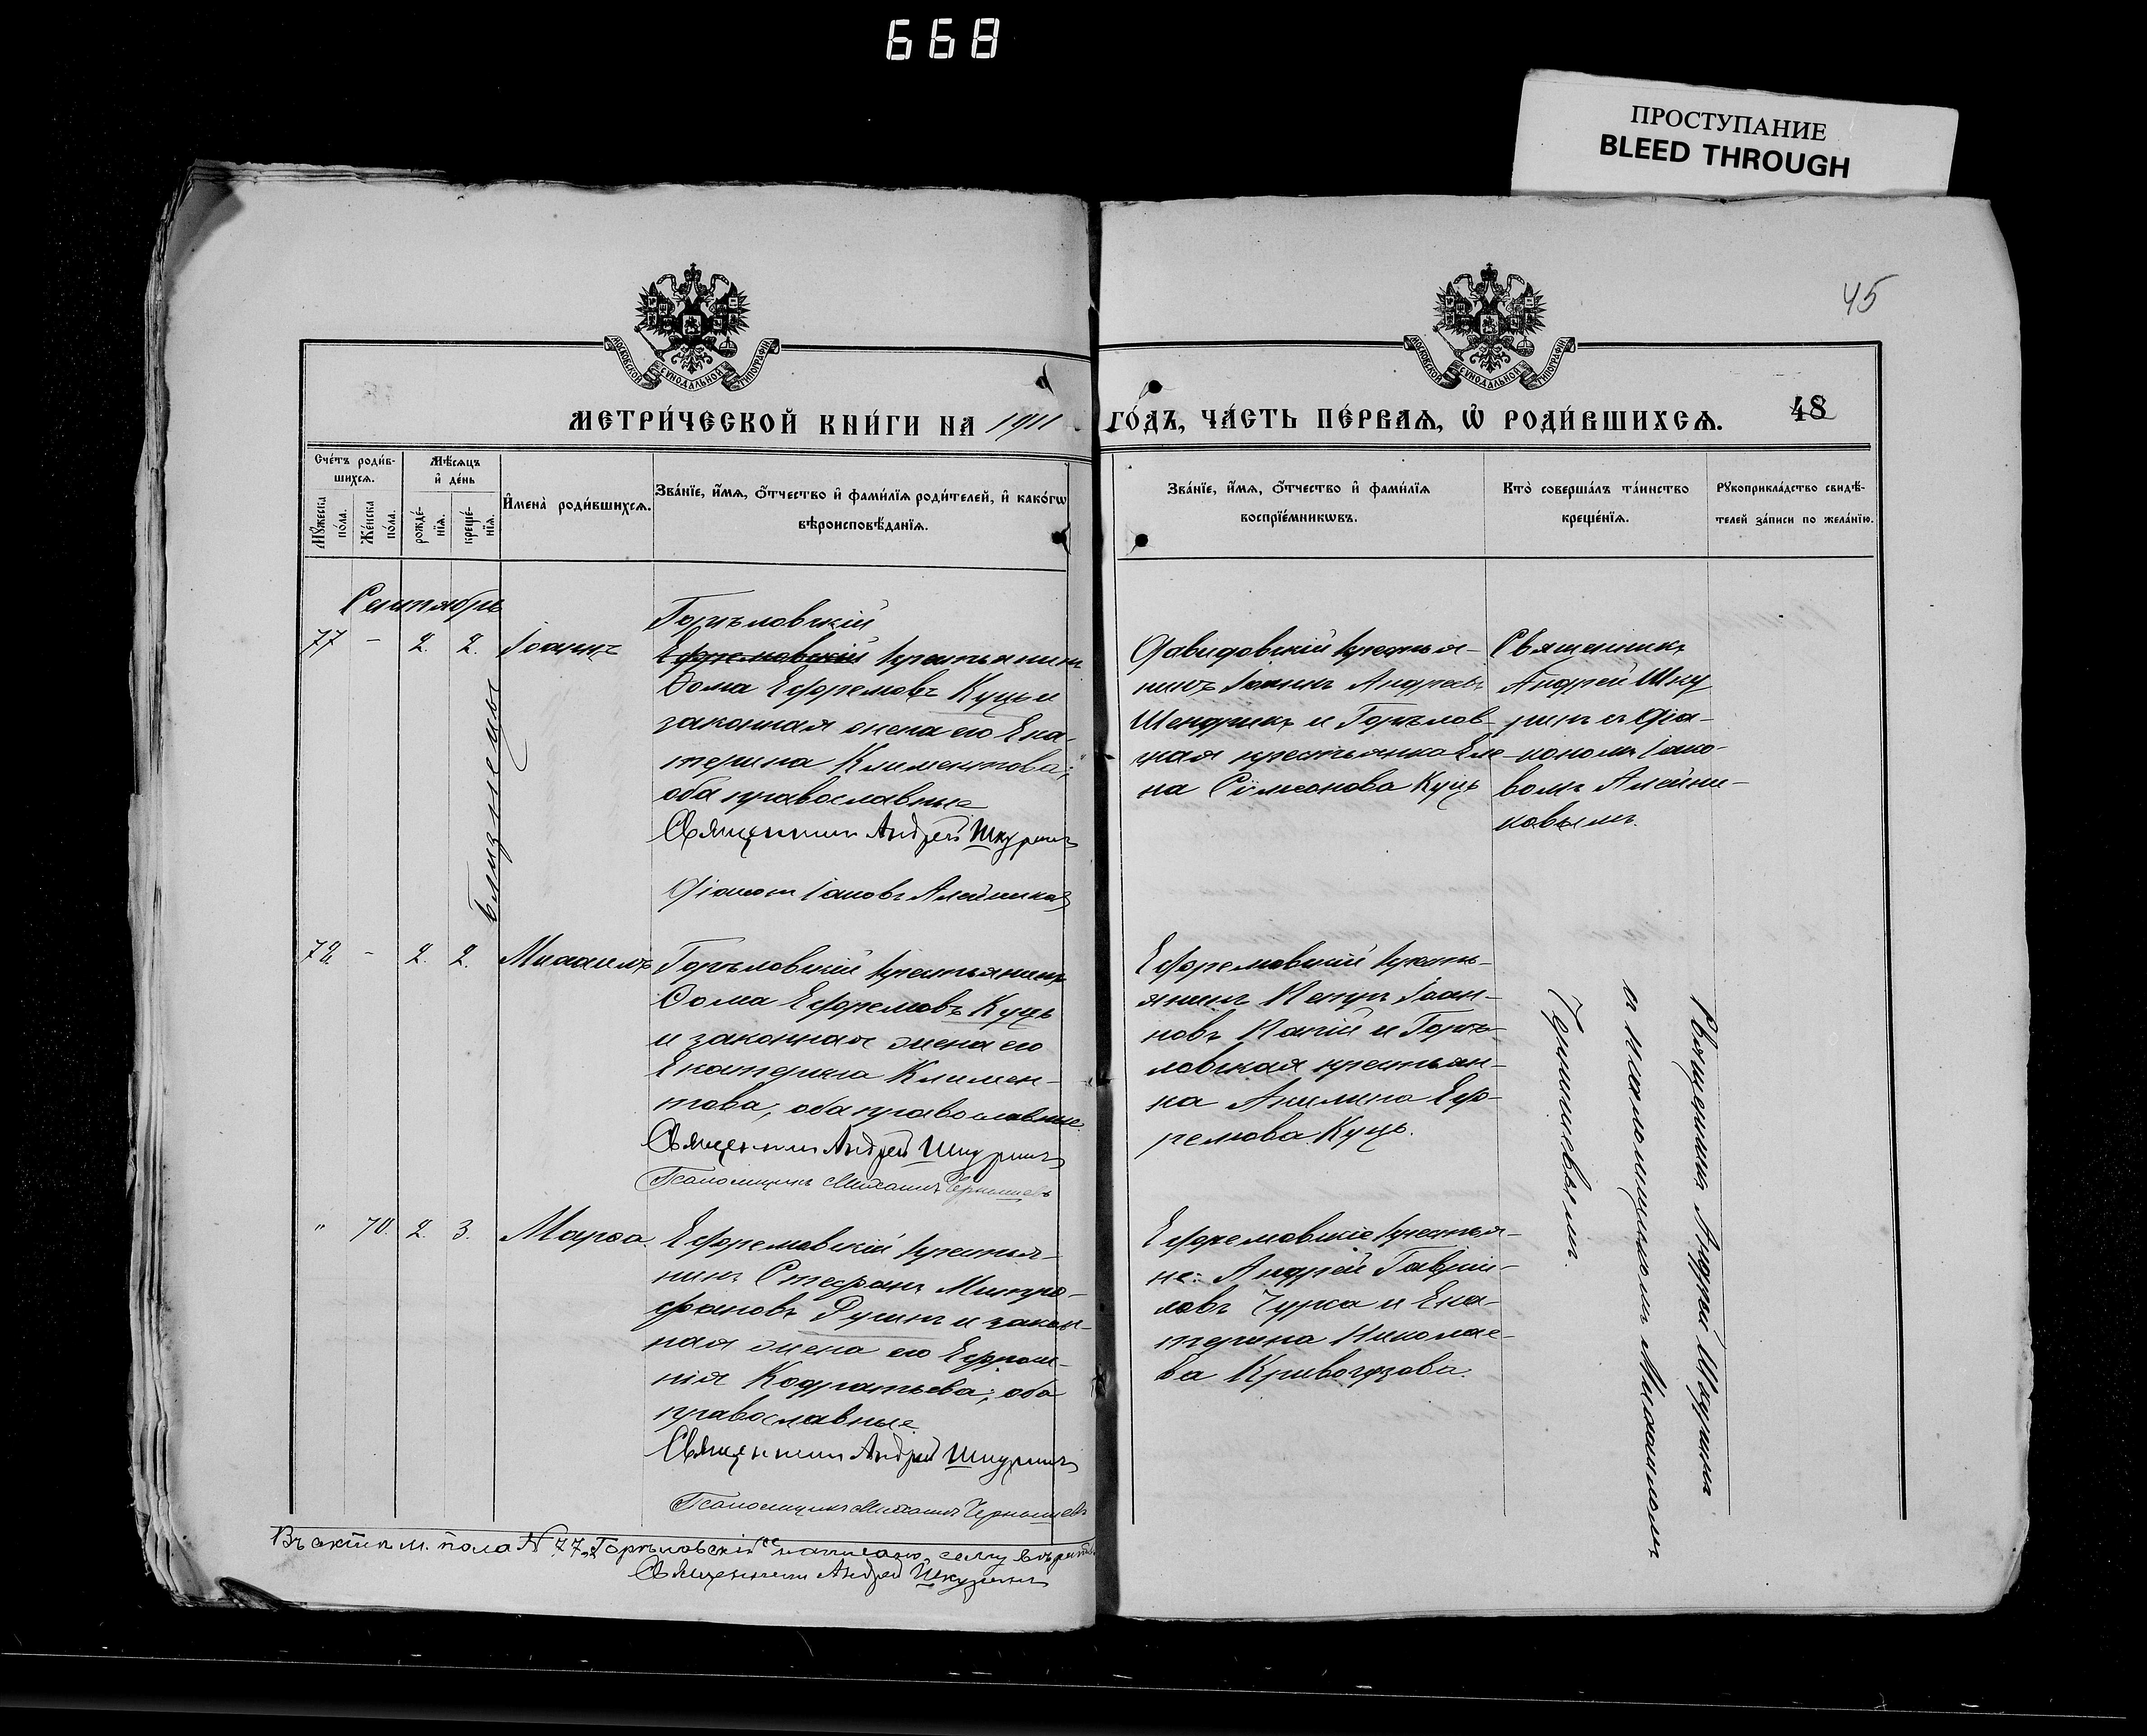 668
ПРОСТУПАНИЕ
BLEED THROUGH
45
МОСКОВСКОЙ СѴНОДАЛЬНОЙ ТИПОГРАФІИ
МОСКОВСКОЙ СѴНОДАЛЬНОЙ ТИПОГРАФІИ
МЕТРИ́ЧЕСКОЙ КНИ́ГИ НА 1911
ГО́ДЪ, ЧА́СТЬ ПЕ́РВАѦ, Ѽ РОДИ́ВШИХСѦ.
48
Сче́тъ роди́в-
шихсѧ.
Мѣ́сѧцъ
и҆ де́нь
Мꙋ́жеска
по́ла.
Же́нска
по́ла.
рожде́-
нїѧ.
креще́-
нїѧ.
И҆мена̀ роди́вшихсѧ.
Зва́нїе, и҆́мѧ, ѻ҆́тчество и҆ фами́лїѧ роди́телей, и҆ како́гѡ
вѣроисповѣ́данїѧ.
Зва́нїе, и҆́мѧ, ѻ҆́тчество и҆ фами́лїѧ
воспрїе́мникѡвъ.
Кто̀ соверша́лъ та́инство
креще́нїѧ.
Рꙋкоприкла́дство свидѣ́-
телей за́писи по жела́нїю.
Сентябрь
77 - 2. 2. Іоаннъ
Близнецы
Горѣловскій
Ефремовскій крестьянинъ
Ѳома Ефремовъ Куць и
законная жена его Ека-
терина Климентова;
оба православные
Священникъ Андрей Шкуринъ
Діаконъ Іаковъ Алейниковъ
Давидовскій крестья-
нинъ Іоаннъ Андреевъ
Шендрикъ и Горѣлов-
ская крестьянка Еле-
на Сѵмеонова Куць
Священникъ
Андрей Шку
ринъ съ Діа-
кономъ Іако-
вомъ Алейни-
ковымъ.
78. - 2. 2. Михаилъ
Горѣловскій крестьянинъ
Ѳома Ефремовъ Куць
и законная жена его
Екатерина Климен-
това; оба православные.
Священникъ Андрей Шкуринъ
Псаломщикъ Михаилъ Чернышевъ
Ефремовскій кресть-
янинъ Петръ Іоан-
новъ и Горѣ-
ловская крестьян-
ка Акилина Еф-
ремова Куць.
Священникъ Андрей Шкуринъ
съ псаломщикомъ Михаиломъ
Чернышевымъ.
" 70. 2. 3. Марѳа.
Ефремовскій крестья-
нинъ Стефанъ Митро-
фановъ и закон-
ная жена его Ефроси-
нія Кодратьева; оба
православные
Священникъ Андрей Шкуринъ
Псаломщикъ Михаилъ Чернышевъ
Ефремовскіе крестья-
не: Андрей Гаврии-
ловъ Чурса и Ека-
терина Николае-
ва Кривогузова.
Въ актѣ м. пола № 77 „Горѣловскій" написано, сему вѣрить.
Священникъ Андрей Шкуринъ